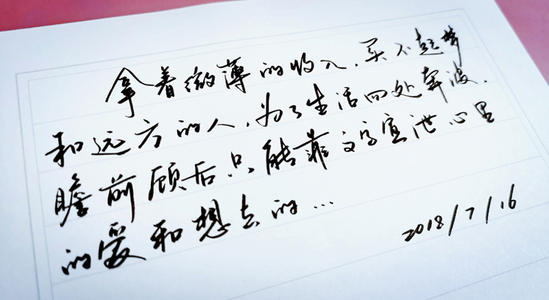 拿着微薄的收入，买不起梦
和远方的人，为了生活四处奔波，
瞻前顾后只能靠文字宣泄心里
的爱和想去的…
2018/7/16